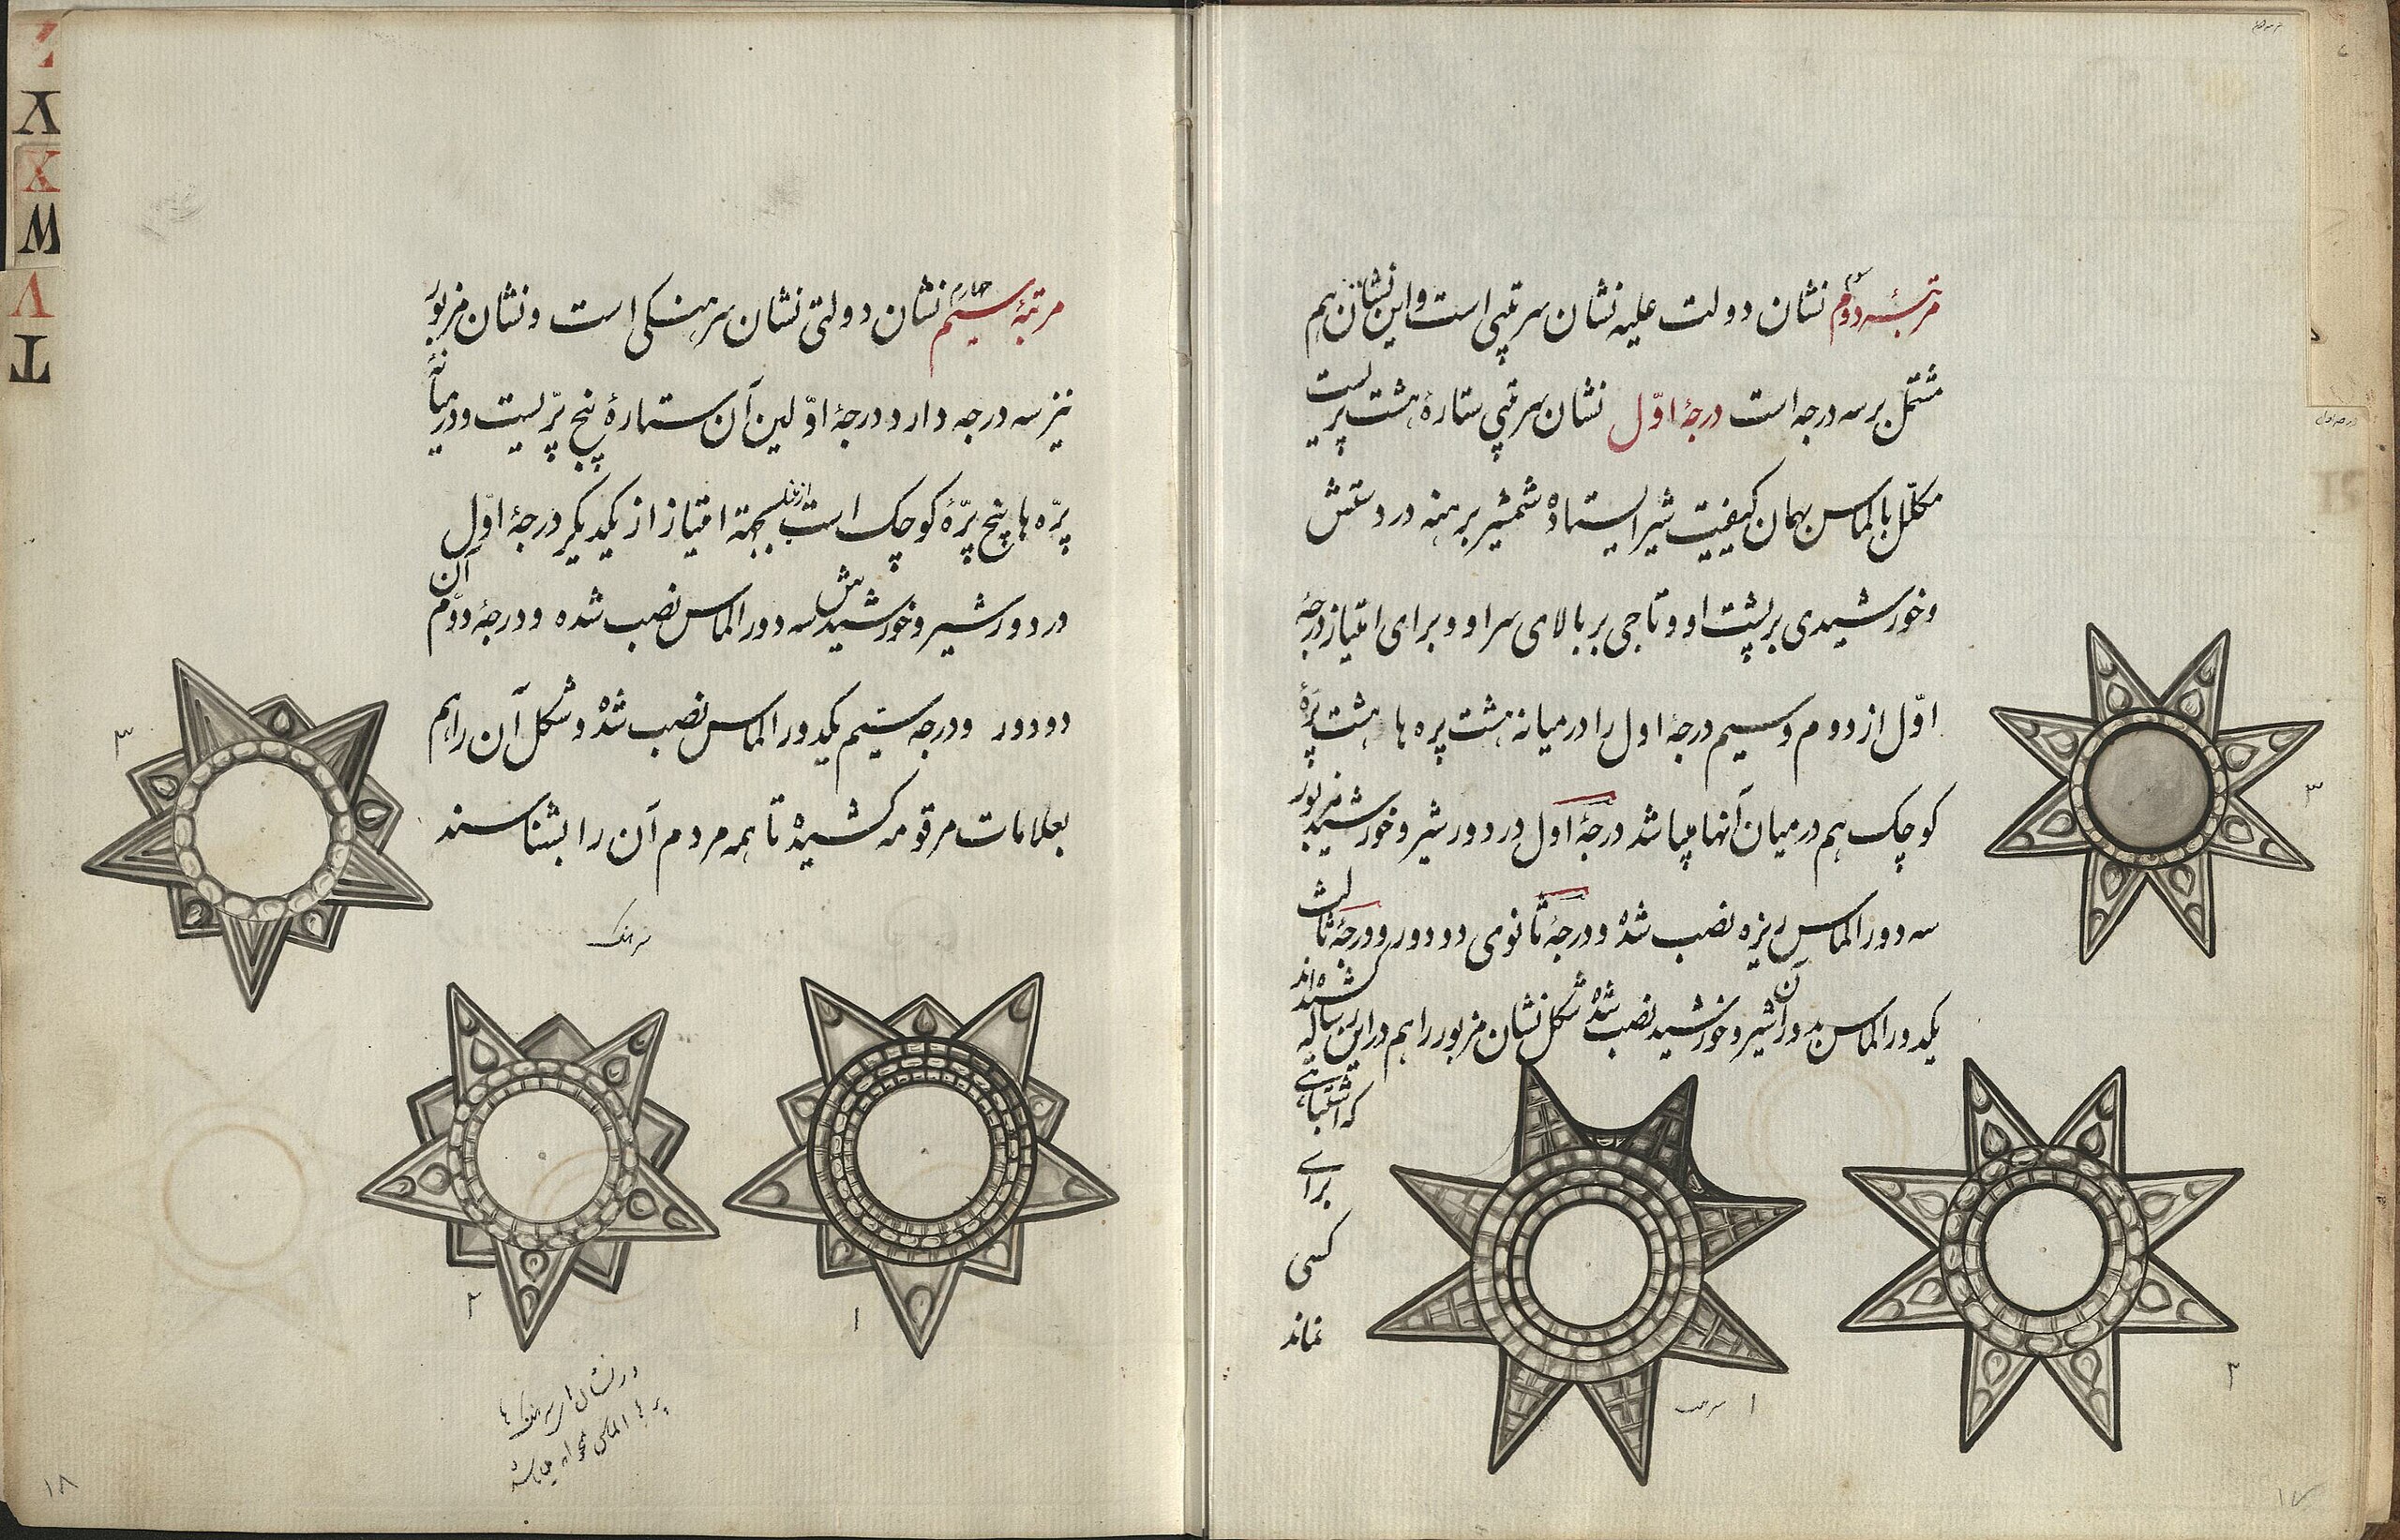 مرتبهٔ دوم سوم نشان دولت علیه نشان سرتیپی است و این نشان هم
مشتمل بر سه درجه است درجهٔ اوّل نشان سرتیپی ستارهٔ هشت پریست
مکلّل بالماس بهمان کیفیت شیر ایستاده شمشیر برهنه در دستش
و خورشیدی بر پشت او و تاجی بر بالای سر او و برای امتیاز درجهٔ
اوّل از دوم و سیم درجهٔ اول را در میانه هشت پره ها هشت پرهٔ
کوچک هم در میان آنها میباشد درجهٔ اول در دور شیر و خورشید مزبور
سه دور الماس ریزه نصب شده و درجهٔ ثانوی دو دور و درجهٔ ثالث
یکدور الماس در دور آن شیر و خورشید نصب شده شکل نشان مزبور را هم در این رساله کشیده‌اند
که اشتباهی
برای
کسی
نماند
۳
۲
۱ سرتیپ
۱۷
مرتبهٔ سیم چهارم نشان دولتی نشان سرهنگی است و نشان مزبور
نیز سه درجه دارد درجهٔ اوّلین آن ستارهٔ پنج پرّیست و در میانهٔ
پرّه ها پنج پرّهٔ کوچک است بجهة امتیاز از یکدیگر درجهٔ اوّل
در دور شیر و خورشیدش سه دور الماس نصب شده و درجهٔ دوّم آن
دو دور و درجه سیّم یکدور الماس نصب شده و شکل آن را هم
بعلامات مرقومه کشیده تا همه مردم آن را بشناسند
سرهنگ
۳
۲
۱
در نشان سرهنگ ها
پره ها الماس
۱۸
Z
V
X
W
V
T